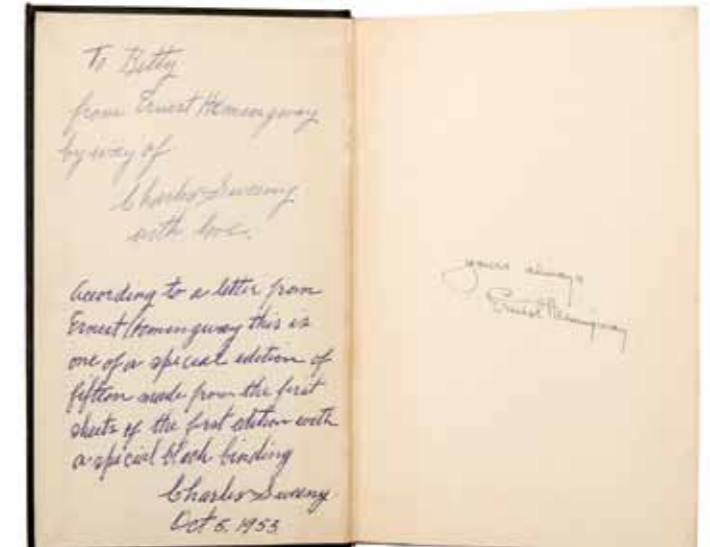 To Betty
from Ernest Hemingway
by way of
Charles Sweeny
with love.
According to a letter from
Ernest Hemingway this is
one of a special edition of
fifteen made from the first
sheets of the first edition with
a special black binding
Charles Sweeny
Oct 5. 1953
yours always
Ernest Hemingway